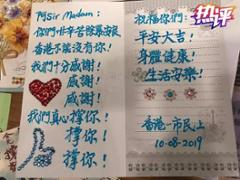 阿Sir Madam:
你們非辛苦除暴安良
香港不能沒有你!
我們十分感謝!
感謝!
感謝!
我們真心撐你!
撐你!
撐你!
祝福你們:
平安大吉!
身體健康!
生活安樂!
香港一市民上
10-08-2019
热评